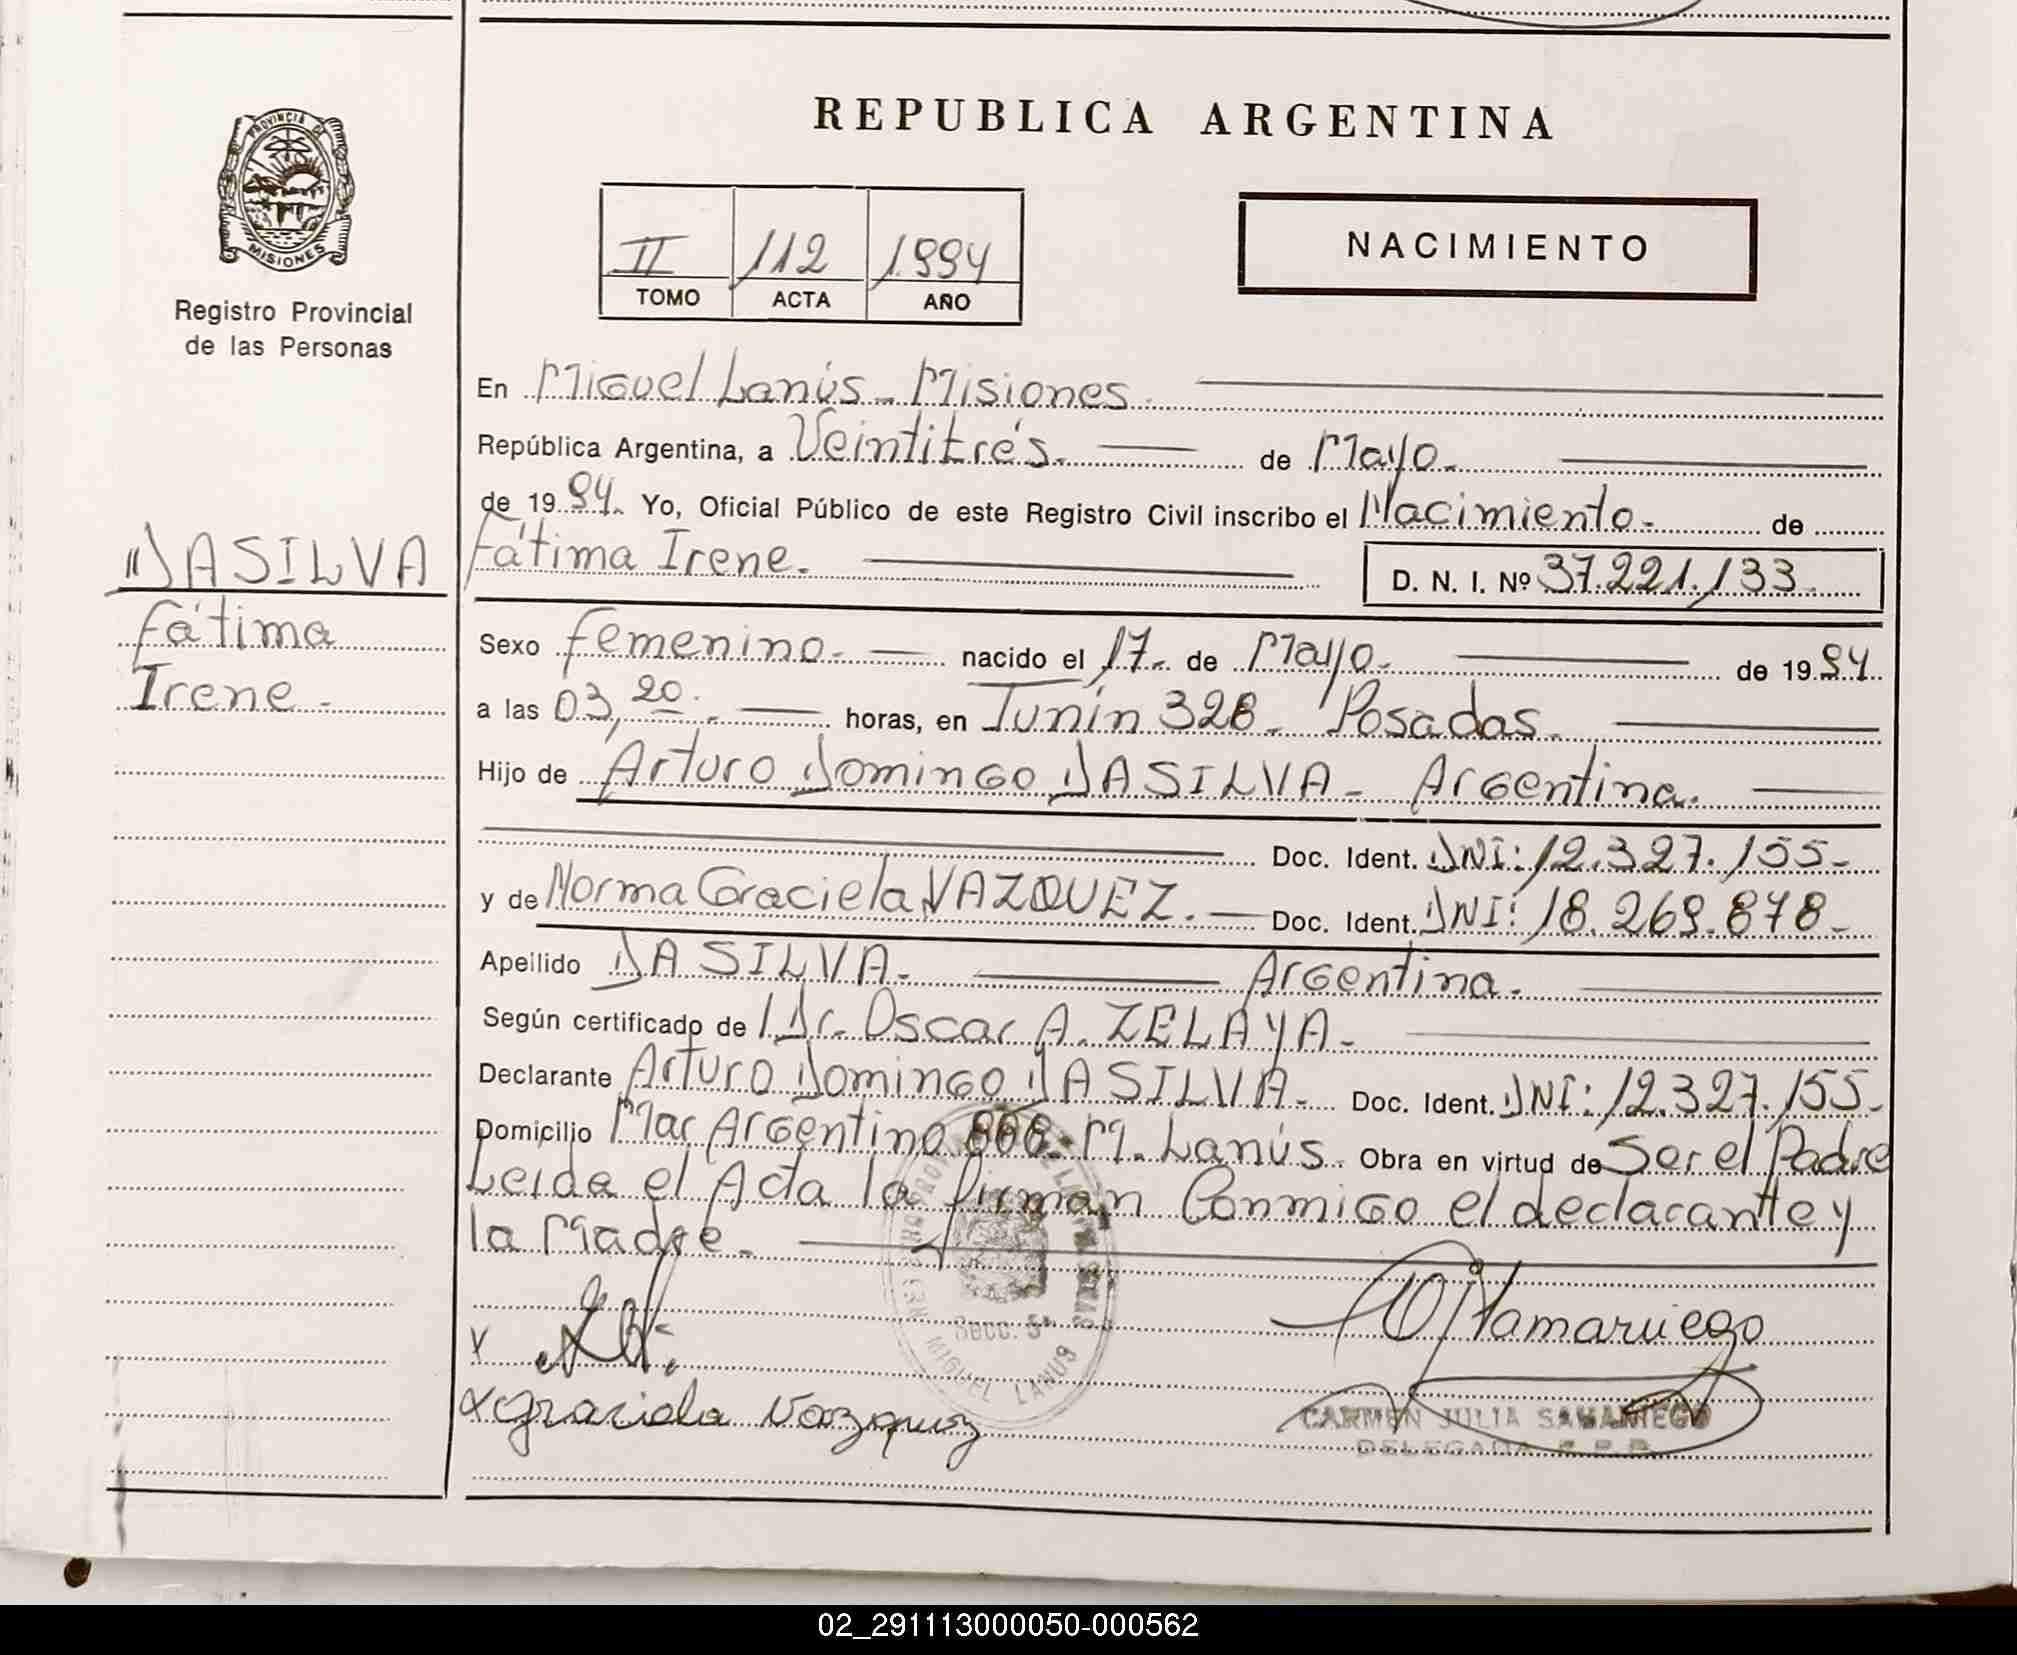 REPUBLICA ARGENTINA
PROVINCIA DE
MISIONES
Registro Provincial
de las Personas
II 112 1.994
TOMO ACTA AÑO
NACIMIENTO
En Miguel Lanús - Misiones.
República Argentina, a Veintitrés. de Mayo.
de 19 94. Yo, Oficial Público de este Registro Civil inscribo el Nacimiento. de
Fátima Irene. D. N. I. Nº 37.221.133.
DASILVA
Fátima
Irene.
Sexo femenino. nacido el 17. de Mayo. de 19 94.
a las 03,20. horas, en Junín 328. Posadas.
Hijo de Arturo Domingo DASILVA - Argentina.
Doc. Ident. DNI: 12.327.155-
y de Norma Graciela VAZQUEZ. Doc. Ident. DNI: 18.269.878-
Apellido DA SILVA. Argentina.
Según certificado de Dr. Oscar A. ZELAYA.
Declarante Arturo Domingo DASILVA. Doc. Ident. DNI: 12.327.155-
Domicilio Mar Argentino M. Lanús. Obra en virtud de Ser el Padre
Leida el Acta la firman Conmigo el declarante y
la Madre.
Secc. 5ª
MIGUEL LANUS
Graciela Vazquez
CARMEN JULIA SAMANIEGO
DELEGADA R.P.P.
02_291113000050-000562